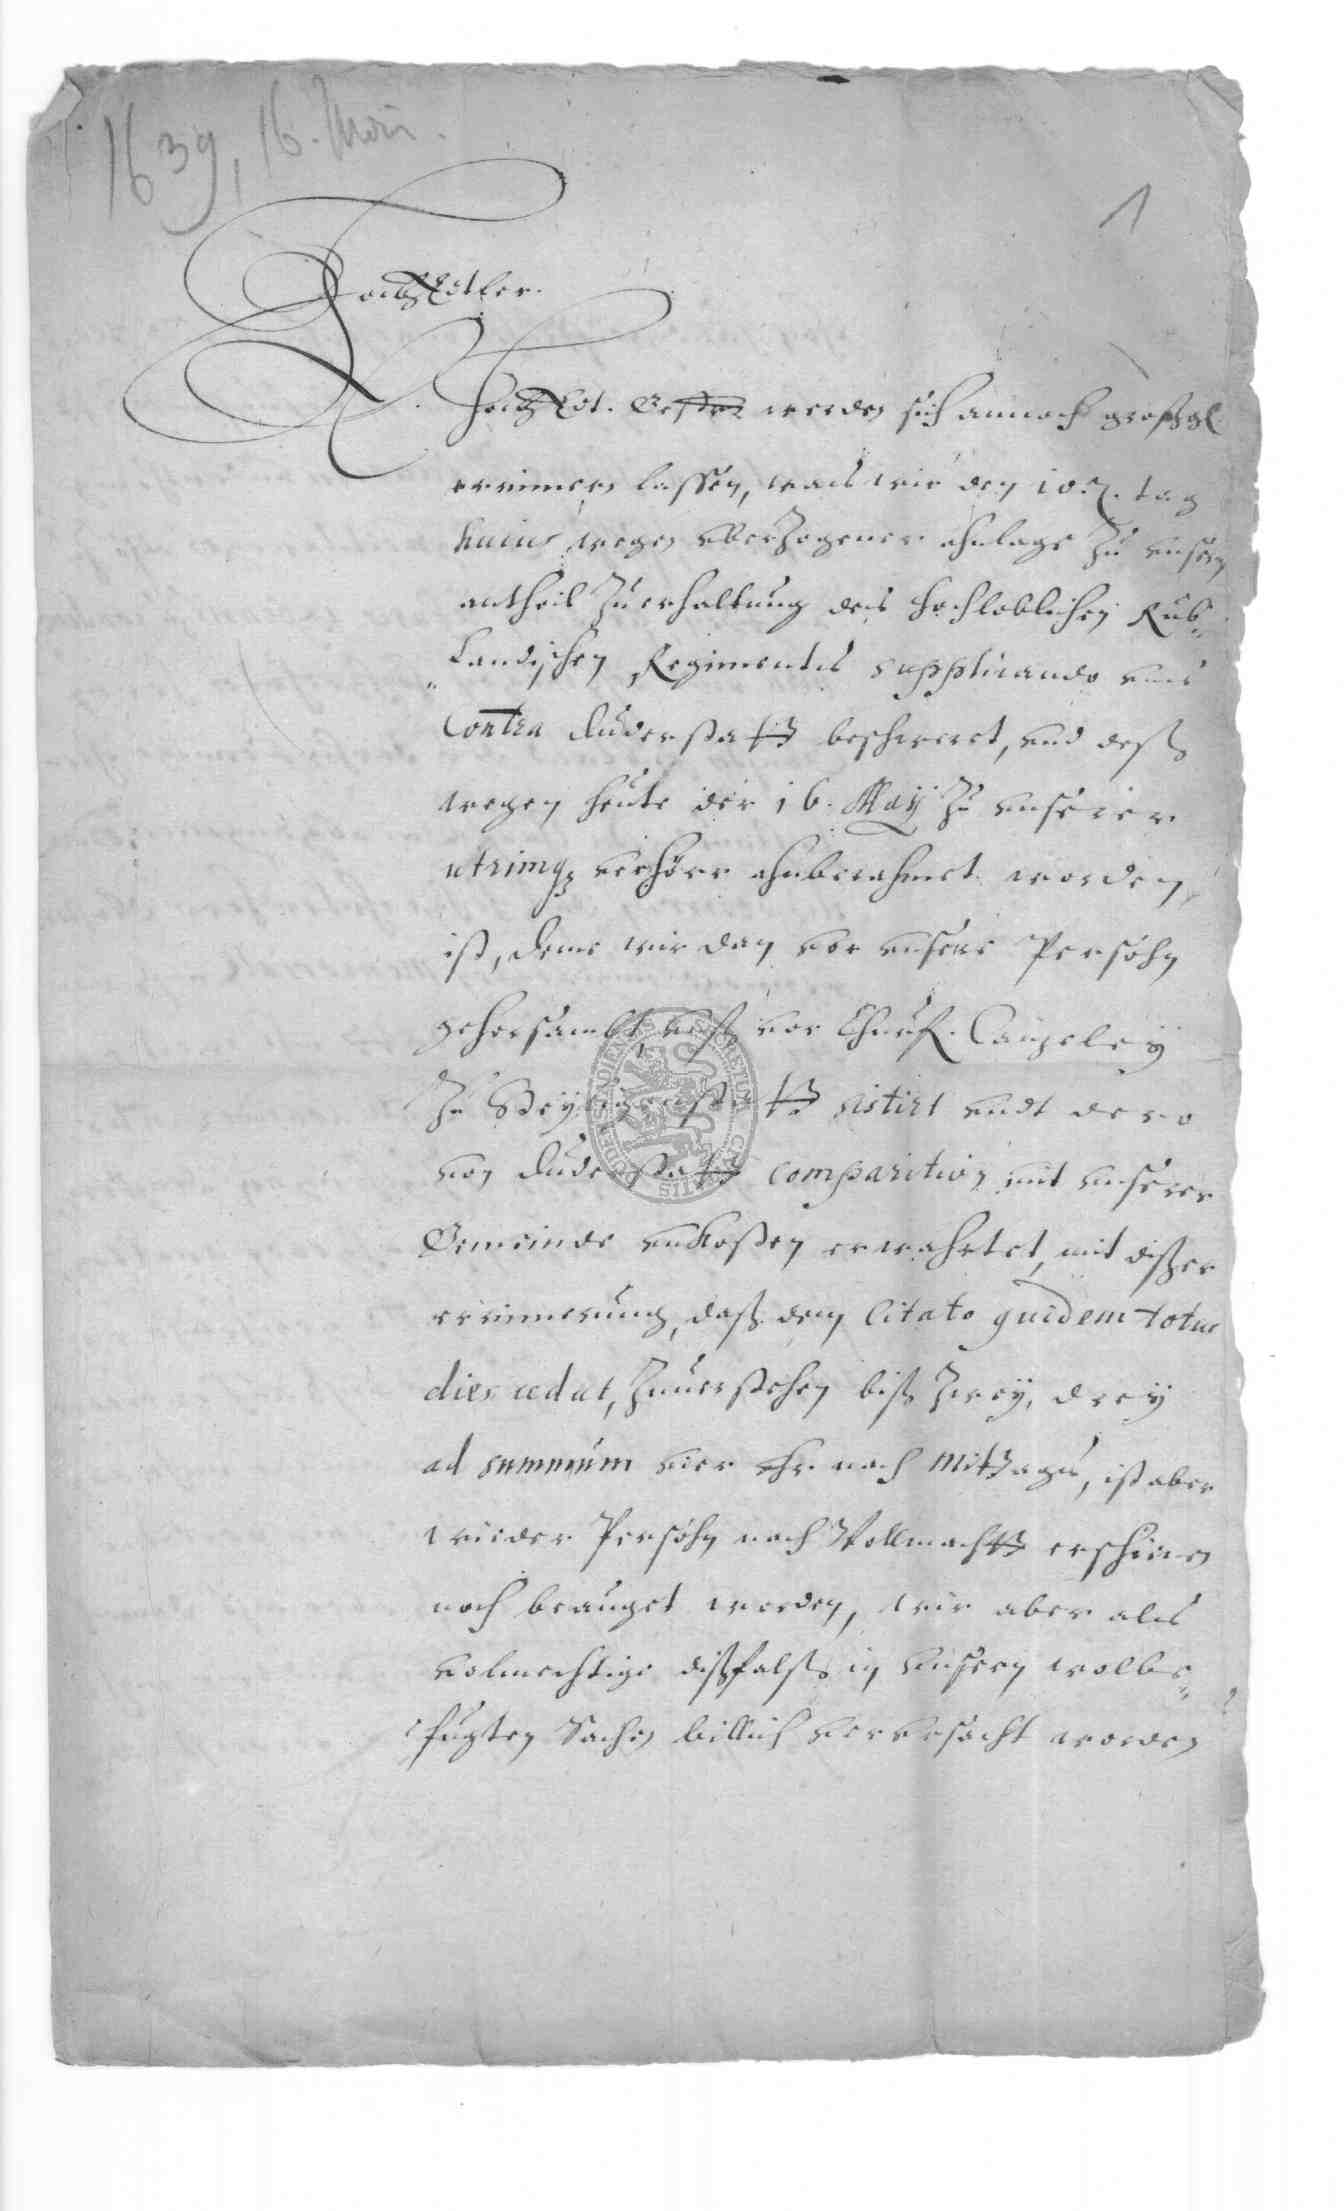 1639, 16. Mai.
1
HochEdtler.
E. HochEdl. Gestr. werden sich annoch großgl.
errinnern lassen, was wir den 10.ten tag
huius wegen uberzogener ahnlage zu unserm
antheil zu erhaltung des hochloblichen Rüb-
Landischen Regimentes supplicando uns
Contra Duderstatt beschweret, und deß
wegen heute der 16. Maÿ zu unserer
utrimq verhörr ahnberahmet worden
ist, deme wir dan vor unsere Persohn
gehorsambst uns vor Churf. Cantzeleÿ
zu Heyligenstatt sistirt undt dero
von Duderstatt comparition mit unserer
Gemeinde unkosten erwahrtet, mit dißer
errinnerung, daß dem Citato quidem totus
dies cedat, zuverstehen biß zweÿ, dreÿ
ad summum vier Uhr nach Mittages, ist aber
wieder Persohn noch Vollmacht erschienen
noch beauget worden, wir aber als
volmechtige dißfalß in unsern wolbe-
fugten Sachen billich verursacht worden